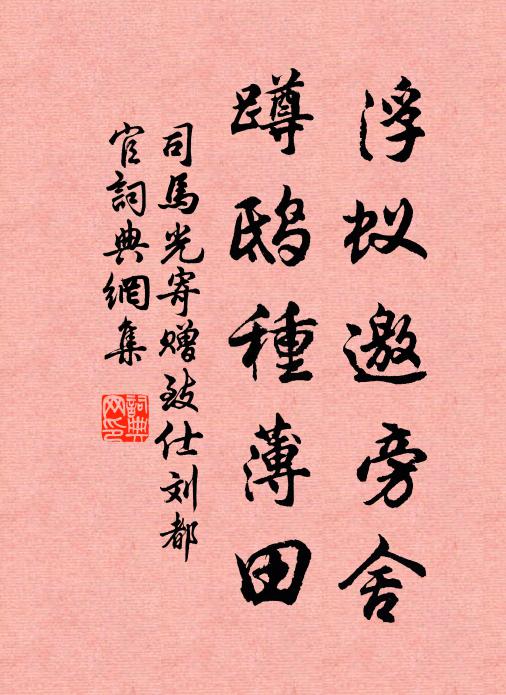 浮蚁邀旁舍
蹲鸱種薄田
司馬光寄赠致仕刘都
官詞典網集
詞典网印